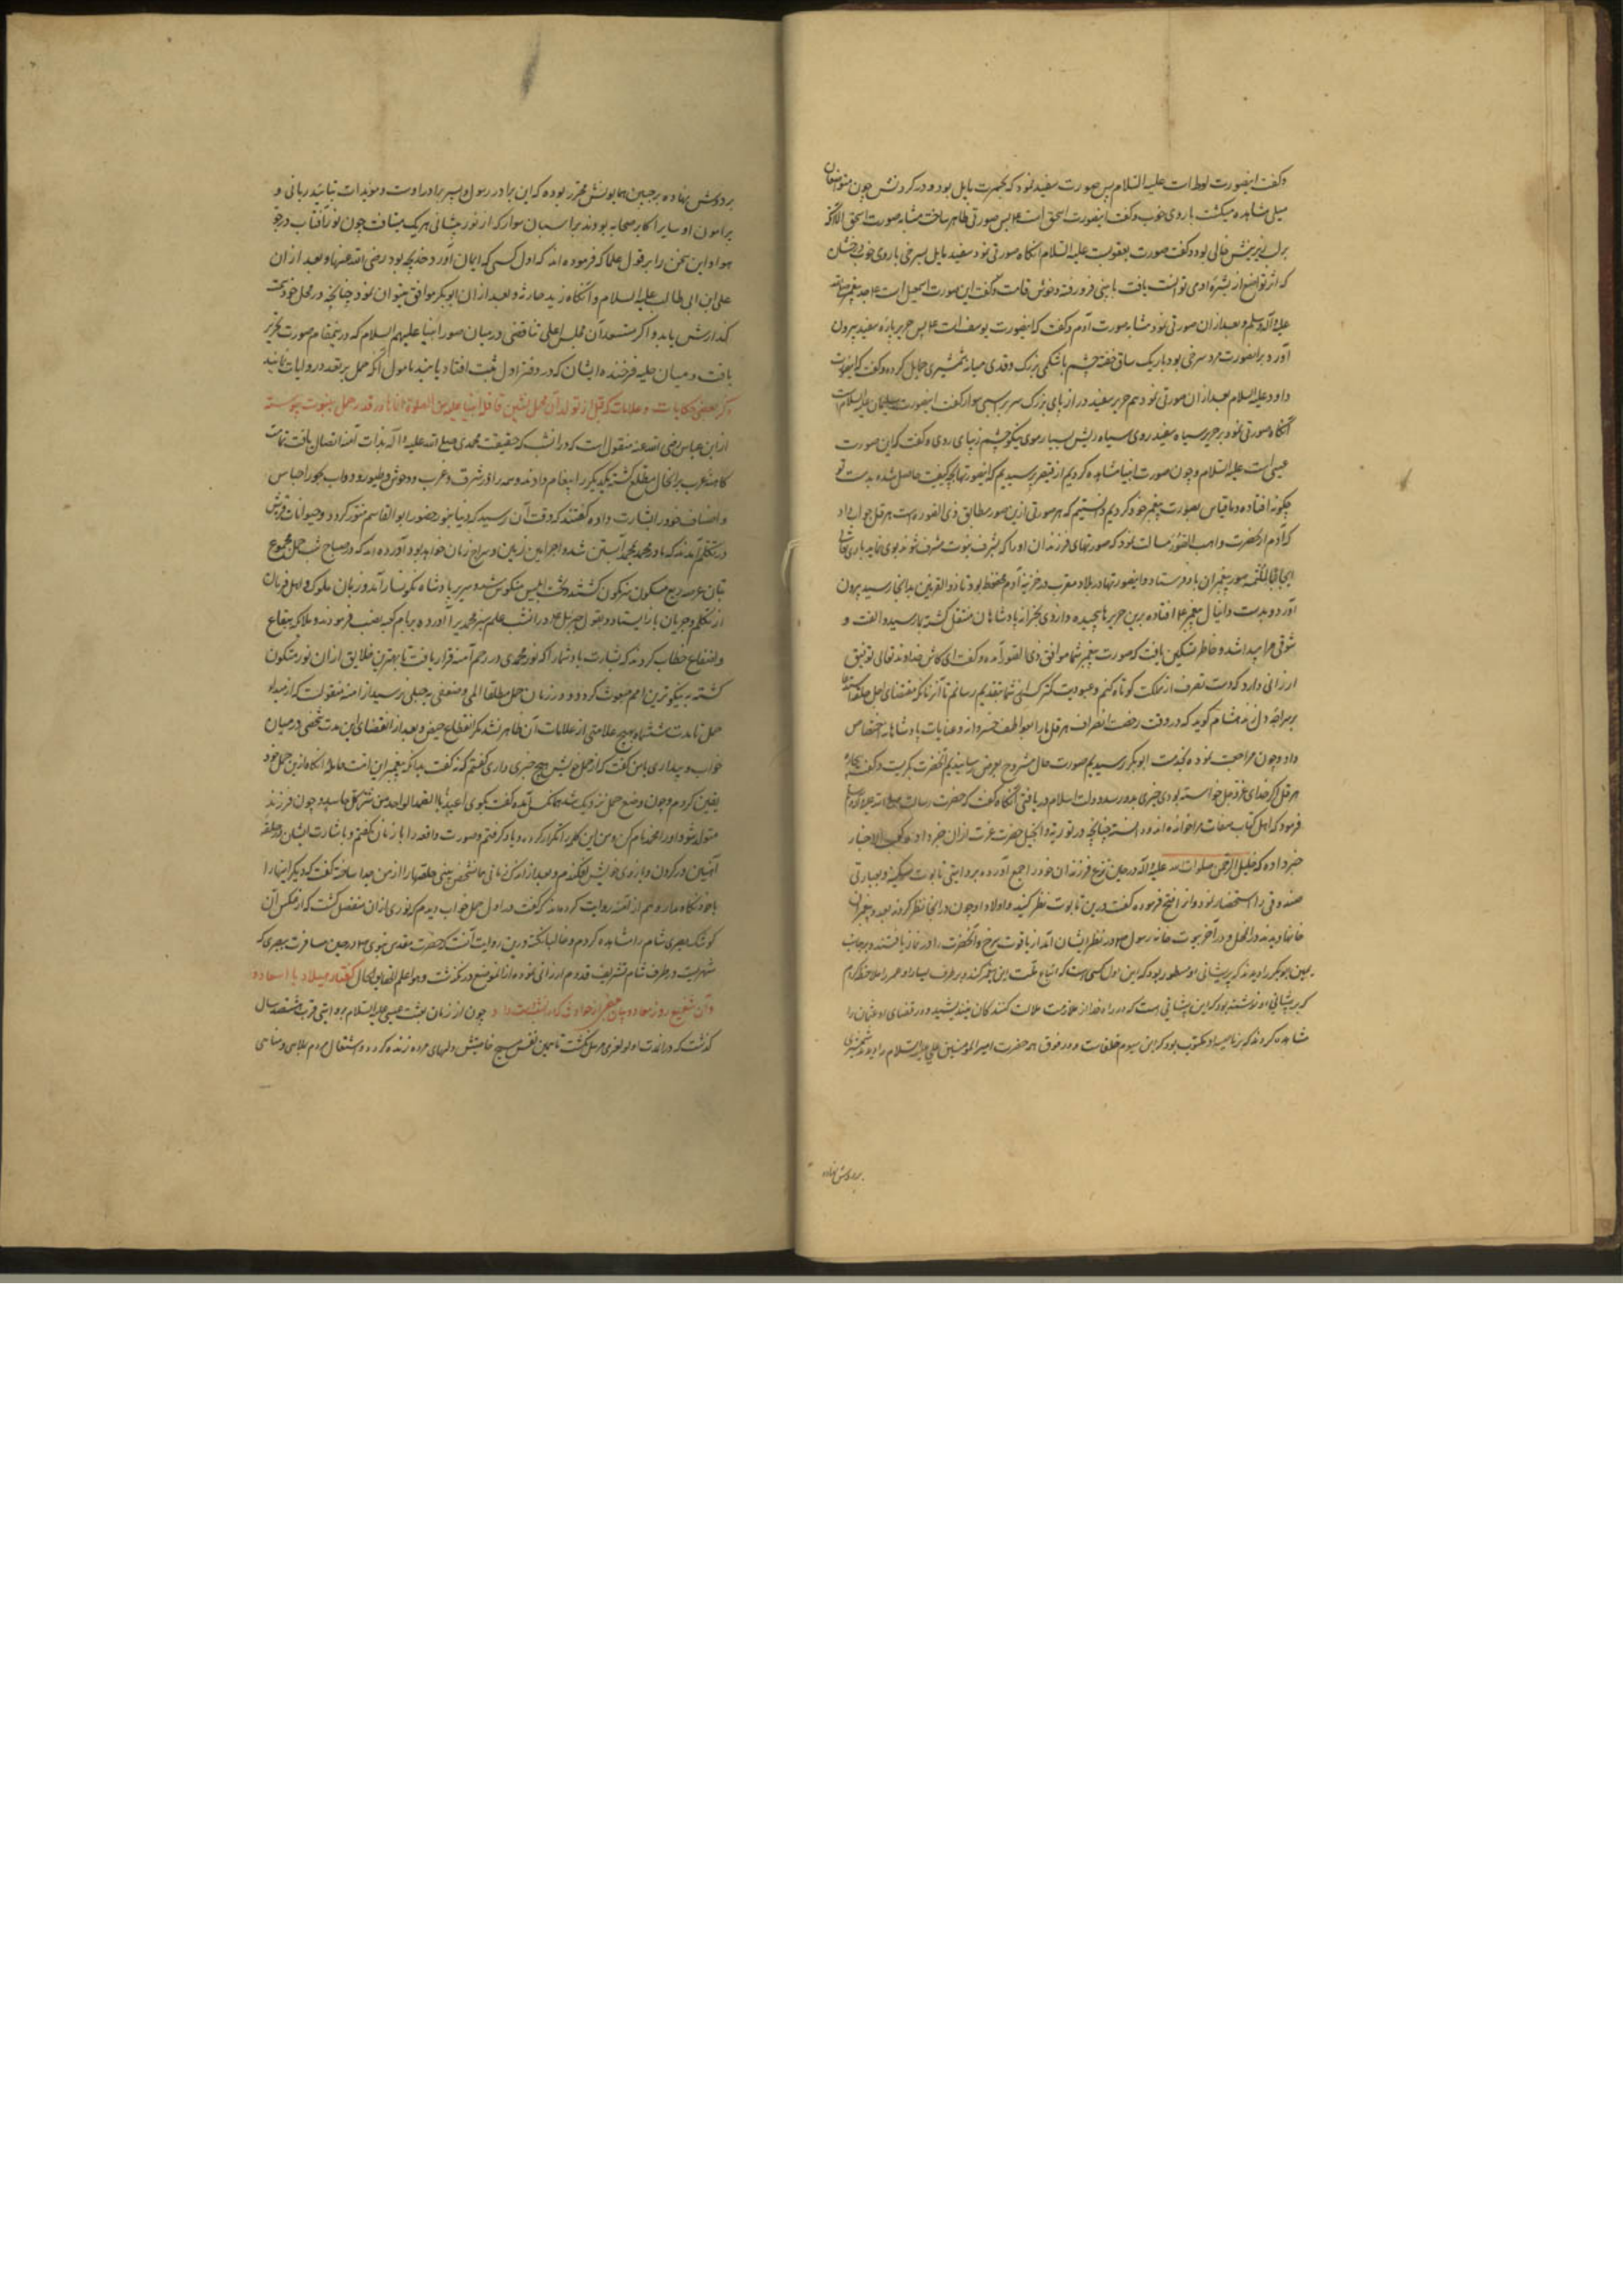 وکفت اینصورت لوط است علیه السلام پس صورت سفید نمود که بحمرت مایل بود و در کردنش چون متواضعان
میلی مشاهده میکشت با روی خوب وکفت اینصورت اسحق است ۴ پس صورتی ظاهر ساخت مشابه صورت اسحق الا آنکه
بر لب زیرینش خالی بود وکفت صورت یعقوبست علیه السلام آنکاه صورتی نمود سفید مایل بسرخی با روی خوب درخشان
که اثر تواضع از بشره او می توانست یافت با بینی فرو رفته و خوش قامت وکفت این صورت اسمعیل است ۴ جد پیغمبر
علیه وآله وسلم و بعد از ان صورتی نمود مشابه صورت آدم وکفت که اینصورت یوسف است ۴ پس حریر پاره سفید بیرون
آورد بر اینصورت مرد سرخی بود باریک ساق خفته چشم با شکمی بزرک و قدی میانه شمشیری حمایل کرده وکفت که اینصورت
داود علیه السلام بعد از ان صورتی نمود هم حریر سفید دراز پای بزرک سرین بر اسبی سوار کفت اینصورت سلیمان علیه السلام
آنکاه صورتی نمود بر حریر سیاه سفید روی سیاه ریش بسیار موی نیکو چشم زیبای روی وکفت که این صورت
عیسی است علیه السلام و چون صورت انبیا مشاهده کردیم از قیصر پرسیدیم که اینصورتها بچه کیفیت حاصل شده بدست تو
چکونه افتاده و ما قیاس بصورت پیغمبر خود کردیم دانستیم که هر صورتی ازین صور مطابق ذی الصوره است هرقل جواب داد
که آدم از حضرت واهب الصور مسالت نمود که صورتهای فرزندان او را که بشرف نبوت مشرف شوند بوی نماید باری تعالی
صور پیغمبران باو فرستاد و اینصورتها در بلاد مغرب در خزینه آدم محفوظ بود تا ذو القرنین بدانجا رسید بیرون
آورد و بدست دانیال پیغمبر ۴ افتاده برین حریرها پیچیده و از وی بخزانه پادشاهان منتقل کشته بما رسید و الفت و
شوقی مرا پیدا شد و خاطر تسکین یافت که صورت پیغمبر شما موافق ذی الصور آمده وکفت ای کاش خداوند تعالی توفیق
ارزانی دارد که دست تصرف از مملکت کوتاه کنم و عبودیت کمترک کسی شما بتقدیم رسانم تا آنزمان که مقتضای اجل
هشام کوید که در وقت رخصت انصراف هرقل ما را بعواطف خسروانه و عنایات پادشاهانه اختصاص
داد و چون مراجعت نموده بخدمت ابوبکر رسیدیم صورت حال مشروح بعرض رسانیدیم آنحضرت بکریست وکفت بیچاره
هرقل اکر خدای عزوجل خواسته بودی خیری بدو رسد و دولت اسلام دریافتی آنکاه کفت که حضرت رسالت صلی الله علیه وآله وسلم
فرمود که اهل کتاب صفات مرا خوانده اند و دانسته چنانچه در توریة و انجیل حضرت عزت از ان خبر داده و کعب الاحبار
خبر داده که خلیل الرحمن صلوات الله علیه وآله در حین نزع فرزندان خود را جمع آورده بروایتی تابوت سکینه و بعبارتی
صندوقی را استحضار نمود و انرا فتح فرموده کفت درین تابوت نظر کنید و اولاد او چون در انجا نظر کردند بعدد پیغمبران
خانها دیدند در آنمحل و در آخر بیوت خانه رسول ۴ در نظر ایشان آمد از یاقوت سرخ و آنحضرت را در نماز یافتند و بر جانب
یمین ابوبکر را دیدند که بر پیشانی او مسطور بود که این اول کسی است که اتباع ملت این پیغمبر کند و بر طرف یسار او عمر را ملاحظه کردند
که بر پیشانی او نوشته بود که این پیشانی است که در راه خدا از ملامت ملامت کنندکان نیندیشید و در قفای او عثمان را
مشاهده کردند که بر ناصیه او مکتوب بود که این سیوم خلفاست و در فوق همه حضرت امیر المومنین علی علیه السلام را دیدند شمشیری
بر دوش نهاده
بر دوش نهاده بر جبین همایونش محرر بوده که این برادر رسول و پسر برادر اوست و موید است بتایید ربانی و
پیرامون او سایر اکابر صحابه بودند بر اسبان سوار که از نور پیشانی هر یک میتافت چون نور آفتاب در جو
هوا و این سخن را بر قول علما که فرموده اند که اول کسی که ایمان آورد خدیجه بود رضی الله عنها و بعد از ان
علی ابن ابی طالب علیه السلام وآنکاه زید حارثه و بعد از ان ابوبکر موافق میتوان نمود چنانچه در محل خود سمت
کذارش یابد و اکر مستمعان مجلس اعلی تناقضی در میان صور انبیا علیهم السلام که در ینمقام صورت تحریر
یافت و میان حلیه فرخنده ایشان که در دفتر اول ثبت افتاد یابند مامول آنکه حمل بر تعدد روایات نمایند
ذکر بعضی حکایات و علامات که قبل از تولد آن محفل نشین قافله انبیا
از ابن عباس رضی الله عنه منقول است که در انشب که حقیقت محمدی صلی الله علیه وآله بذات آمنه اتصال یافت تمامت
کاهنه عرب بر انحال مطلع کشته یکدیکر را پیغام دادند وسه را در شرق و غرب و وحوش و طیور و دواب بحور اجناس
و اصناف خود را بشارت داده کفتند که وقت آن رسید که دنیا بنور حضور ابو القاسم منور کردد و حیوانات قریش
در تکلم آمدند که مادر محمد بمحمد آبستن شد و او امین زمین و سراج زمان خواهد بود و آورده اند که در صباح شب حمل مجموع
بتان عرصه ربع مسکون سرنکون کشتند و تخت ابلیس منکوس شد و سریر پادشاه نکونسار آمد و زبان ملوک و اهل فرمان
از تکلم و جریان باز ایستاد و بقول جبرئیل ۴ در انشب علم سبز محمدیرا آورده بر بام کعبه نصب فرمودند و ملائکه بقاع
و اصقاع خطاب کردند که بشارت باد شما را که نور محمدی در رحم آمنه قرار یافت تا بهترین خلایق از ان نور متکون
کشته به نیکوترین امم مبعوث کردد و در زمان حمل مطلقا المی و ضعفی به حبلی نرسید از آمنه منقولست که از مبداء
حمل تا مدت ششماه هیچ علامتی از علامات آن ظاهر نشد مکر انقطاع حیض و بعد از انقضای این مدت شخصی در میان
خواب و بیداری بمن کفت که از حمل خویش هیچ خبری داری کفتم که نه کفت بدانکه پیغمبر این امت حامله آنکاه ازین حمل خود
یقین کردم و چون وضع حمل نزدیک شد همانکس آمده کفت بکوی اعیذه بالصمد الواحد من شر کل حاسد و چون فرزند
متولد شود او را محمد نام کن و من این کلمه را تکرار کرده و یاد کرفتم و صورت واقعه را با زنان بکفتم و باشارت ایشان دو حلقه
آهنین در کردن و بازوی خویش افکندم و بعد از اندک زمانی شخص پیشی حلقها را از من جدا ساخته کفت که دیکر اینها را
با خود نکاه مدار و هم از آمنه روایت کرده اند که کفت در اول حمل خواب دیدم که نوری از ان منفصل کشت که از عکس آن
کوشک بصری شام را مشاهده کردم و غالبا نکته درین روایت آنست که حضرت مقدس نبوی ۴ در حین مسافرت ببصری که
شهریست در طرف شام تشریف قدوم ارزانی نموده از انموضع در نکذشت وهو اعلم بحقایق الحال کفتار میلاد با اسعاد
وآن شفیع روز معاد و بیان بعضی از حوادث که در انشب دست داد چون از زمان بعثت عیسی علیه السلام بروایتی قرب ششصد سال
کذشت که در ان مدت اولو العزمی مرسل نکشت تا بیمن نفس مسیح خاصیتش دلهای مرده زنده کردد و اشتغال مردم بملاهی و مناهی